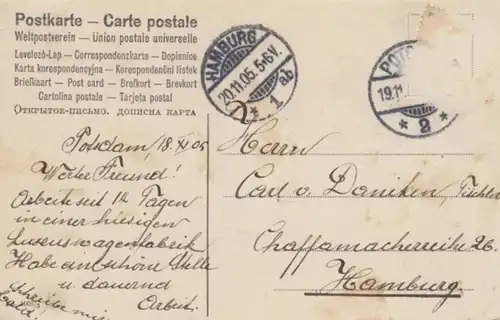 Postkarte – Carte postale
Weltpostverein – Union postale universelle
Levelező-Lap – Correspondenzkarte – Dopisnice
Karta korespondencyjna – Korespondenční lístek
Briefkaart – Post card – Brefkort – Brevkort
Cartolina postale – Tarjeta postal
Открытое-письмо. Дописна карта
HAMBURG
20.11.05. 5-6V.
1 ab
19.11
* 2 *
Potsdam, 18 XI 05
Werter Freund!
Arbeite seit 14 Tagen
in einer hiesigen
Luxuswagenfabrik
Habe eine schöne Stelle
u dauernd
Arbeit.
Schreibe mir
bald!
Herrn
Carl v. Daniken, Tischler
Chaffamacherreihe 26.
Hamburg.